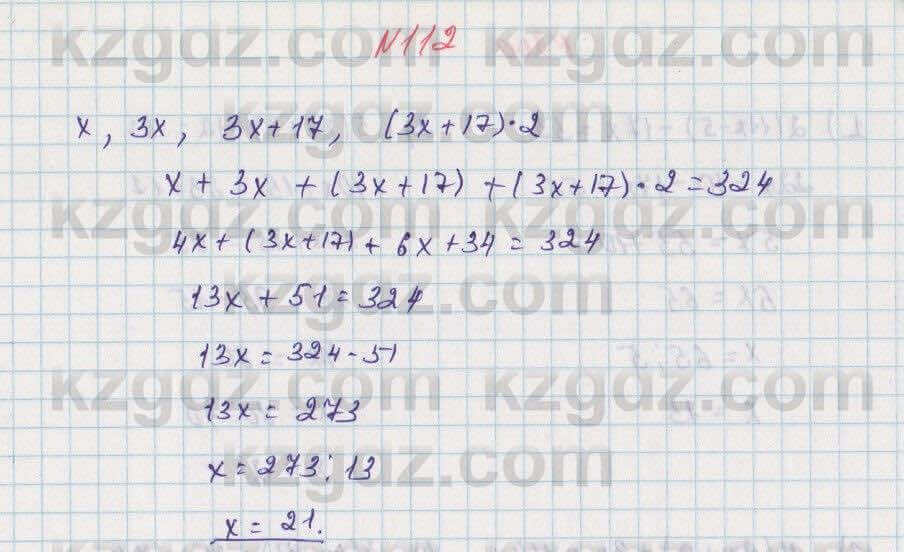 N112
x, 3x, 3x+17, (3x+17)·2
x + 3x + (3x+17) + (3x+17)·2 = 324
4x + (3x+17) + 6x + 34 = 324
13x + 51 = 324
13x = 324 - 51
13x = 273
x = 273 : 13
x = 21.
kzgdz.com kzgdz.com
kzgdz.com
kzgdz.com kzgdz.com
kzgdz.com
kzgdz.com kzgdz.com
kzgdz.com